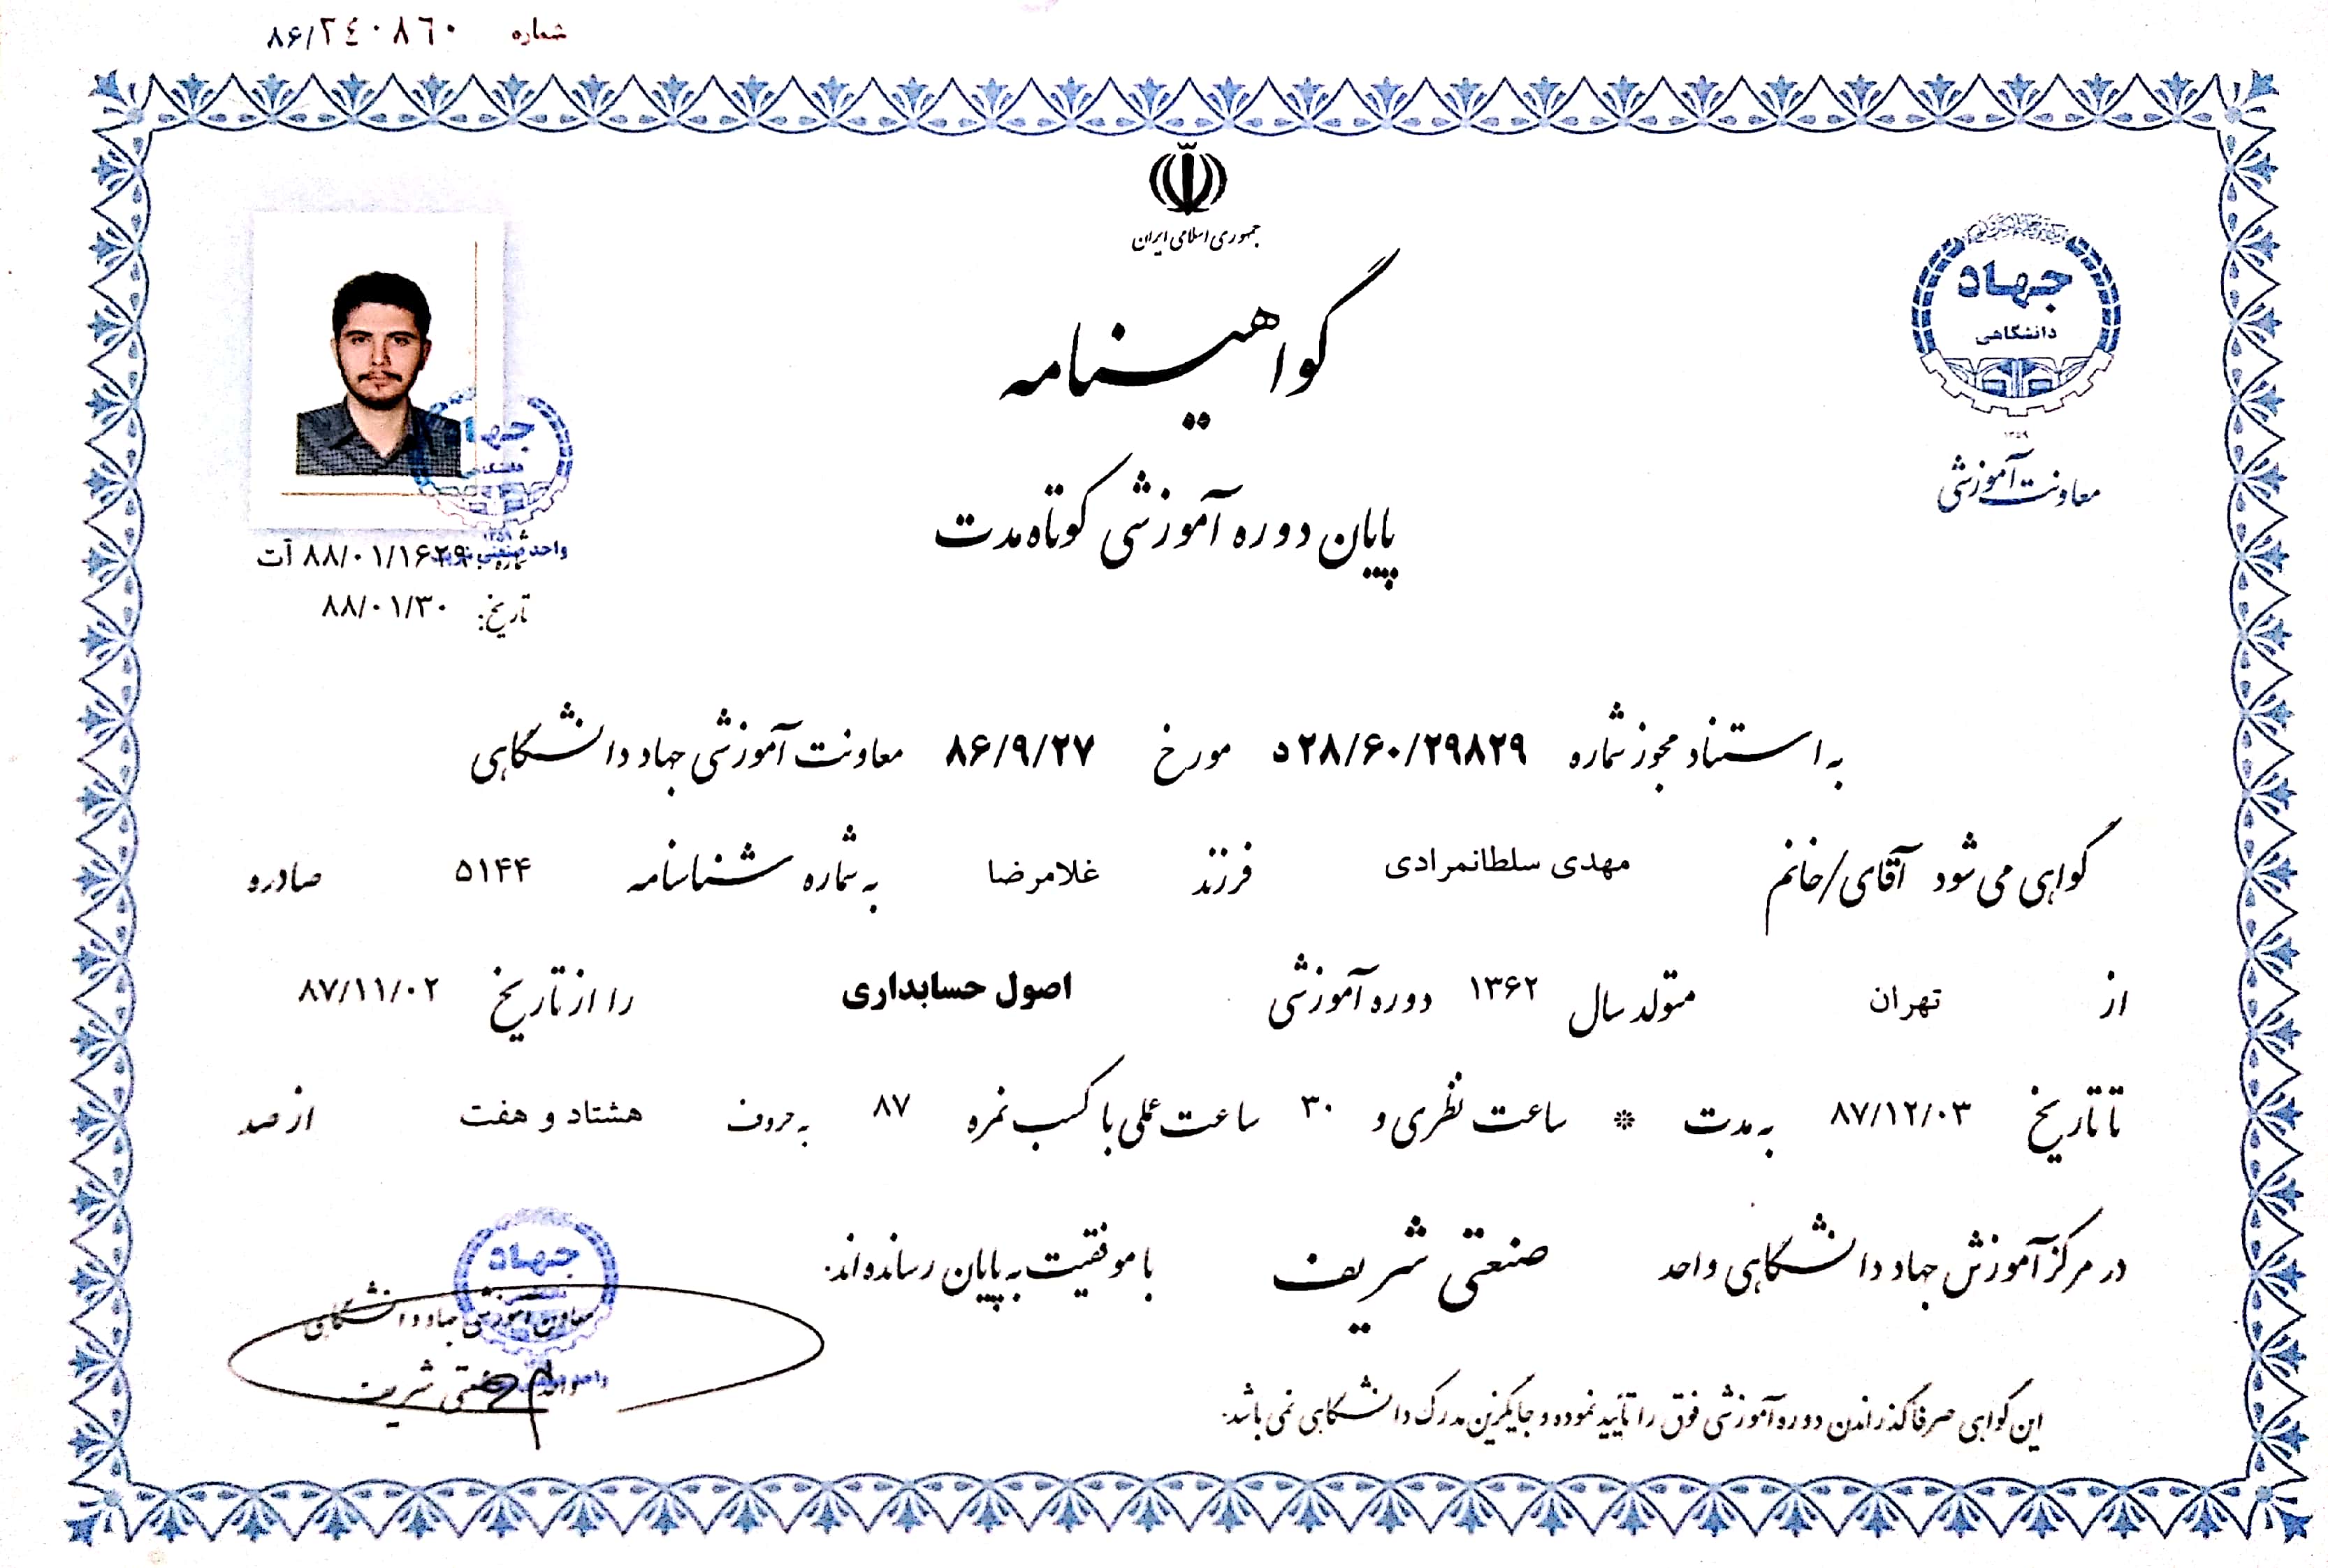 شماره ۸۶/۲٤۰۸٦۰
جمهوری اسلامی ایران
گواهینامه
پایان دوره آموزشی کوتاه مدت
جهاد
دانشگاهی
۱۳۵۹
معاونت آموزشی
۸۸/۰۱/۱۶۲۹ آت
تاریخ: ۸۸/۰۱/۳۰
به استناد مجوز شماره ۲۸/۶۰/۲۹۸۲۹ د مورخ ۸۶/۹/۲۷ معاونت آموزشی جهاد دانشگاهی
گواهی می شود آقای/خانم مهدی سلطانمرادی فرزند غلامرضا به شماره شناسنامه ۵۱۴۴ صادره
از تهران متولد سال ۱۳۶۲ دوره آموزشی اصول حسابداری را از تاریخ ۸۷/۱۱/۰۲
تا تاریخ ۸۷/۱۲/۰۳ به مدت * ساعت نظری و ۳۰ ساعت عملی با کسب نمره ۸۷ به حروف هشتاد و هفت از صد
در مرکز آموزش جهاد دانشگاهی واحد صنعتی شریف با موفقیت به پایان رسانده اند.
جهاد
معاون آموزشی جهاد دانشگاهی
واحد صنعتی شریف
این گواهی صرفا گذراندن دوره آموزشی فوق را تأیید نموده و جایگزین مدرک دانشگاهی نمی باشد.